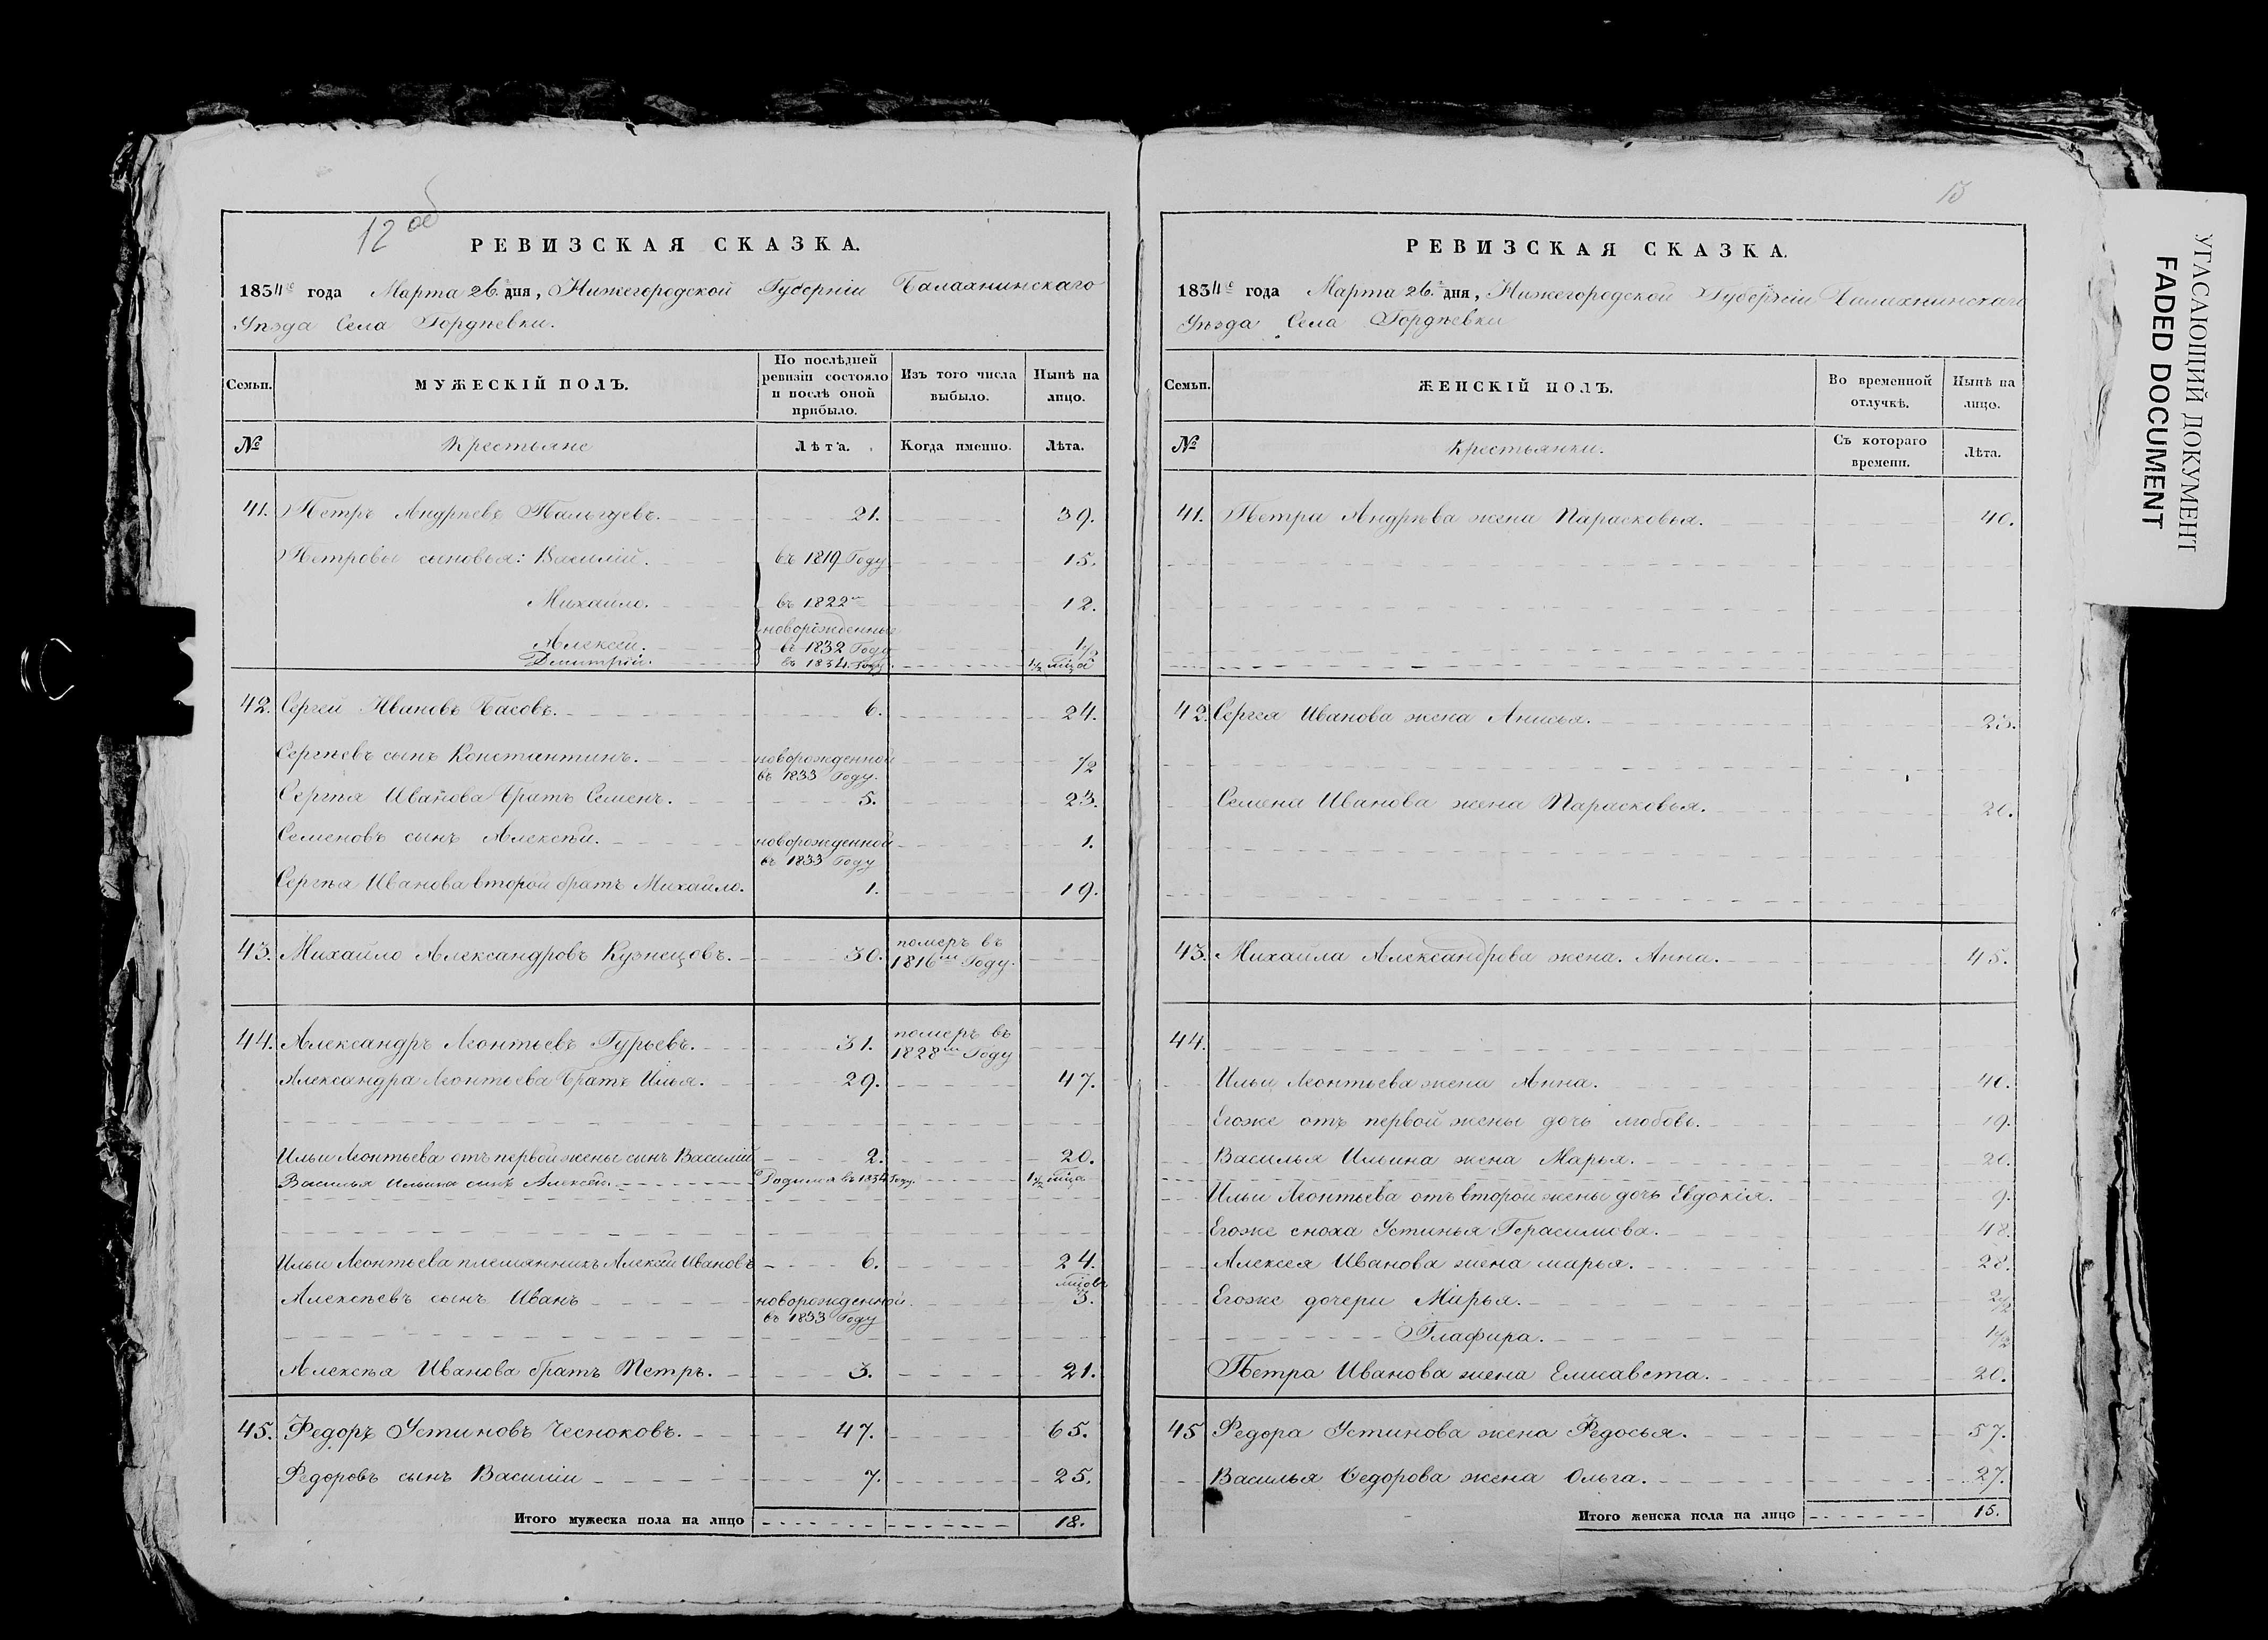 12 об
РЕВИЗСКАЯ СКАЗКА.
1834го года Марта 26. дня, Нижегородской Губерніи Балахнинскаго
Уѣзда Села Гордѣевки.
Семьи. МУЖЕСКІЙ ПОЛЪ. По послѣдней ревизіи состояло и послѣ оной прибыло. Изъ того числа выбыло. Нынѣ на лицо.
№ Крестьяне Лѣта. Когда именно. Лѣта.
41. Петръ Андрѣевъ Пальгуевъ. 21. 39.
Петровы сыновья: Василій. въ 1819 Году 15.
Михайло. въ 1822м 12.
новорожденные
Алексей. въ 1832 Году 1 1/2
Дмитрій. въ 1834 Году 1/2 мѣца
42. Сергей Ивановъ Басовъ. 6. 24.
Сергѣевъ сынъ Константинъ. новорожденной 1/2
въ 1833 Году.
Сергѣя Иванова братъ Семенъ. 5. 23.
Семеновъ сынъ Алексѣй. новорожденной 1.
въ 1833 Году
Сергѣя Иванова второй братъ Михайло. 1. 19.
43. Михайло Александровъ Кузнецовъ. 30. померъ въ
1816м Году.
44. Александръ Леонтьевъ Гурьевъ. 31. померъ въ
1828м Году
Александра Леонтьева братъ Илья. 29. 47.
Ильи Леонтьева отъ первой жены сынъ Василій 2. 20.
Василья Ильина сынъ Алексѣй. Родился въ 1834 Году. 1 1/2 мѣца
Ильи Леонтьева племянникъ Алексѣй Ивановъ 6. 24.
Алексѣевъ сынъ Иванъ новорожденной. мѣцовъ 3.
въ 1833 Году
Алексѣя Иванова братъ Петръ. 3. 21.
45. Федоръ Устиновъ Чесноковъ. 47. 65.
Федоровъ сынъ Василій 7. 25.
Итого мужеска пола на лицо 18.
13
РЕВИЗСКАЯ СКАЗКА.
1834го года Марта 26. дня, Нижегородской Губерніи Балахнинскаго
Уѣзда Села Гордѣевки
Семьи. ЖЕНСКІЙ ПОЛЪ. Во временной отлучкѣ. Нынѣ на лицо.
№ Крестьянки. Съ котораго времени. Лѣта.
41. Петра Андрѣва жена Парасковья. 40.
42. Сергея Иванова жена Анисья. 23.
Семена Иванова жена Парасковья. 20.
43. Михайла Александрова жена. Анна. 45.
44.
Ильи Леонтьева жена Анна. 40.
Егоже отъ первой жены дочь Любовь. 19.
Василья Ильина жена Марья. 20.
Ильи Леонтьева отъ второй жены дочь Евдокія. 9.
Егоже сноха Устинья Герасимова. 48.
Алексея Иванова жена Марья. 28.
Егоже дочери Марья. 2 1/2
Глафира. 1 1/2
Петра Иванова жена Елисавета. 20.
45 Федора Устинова жена Федосья. 57.
Василья Федорова жена Ольга. 27.
Итого женска пола на лицо 15.
УГАСАЮЩИЙ ДОКУМЕНТ
FADED DOCUMENT